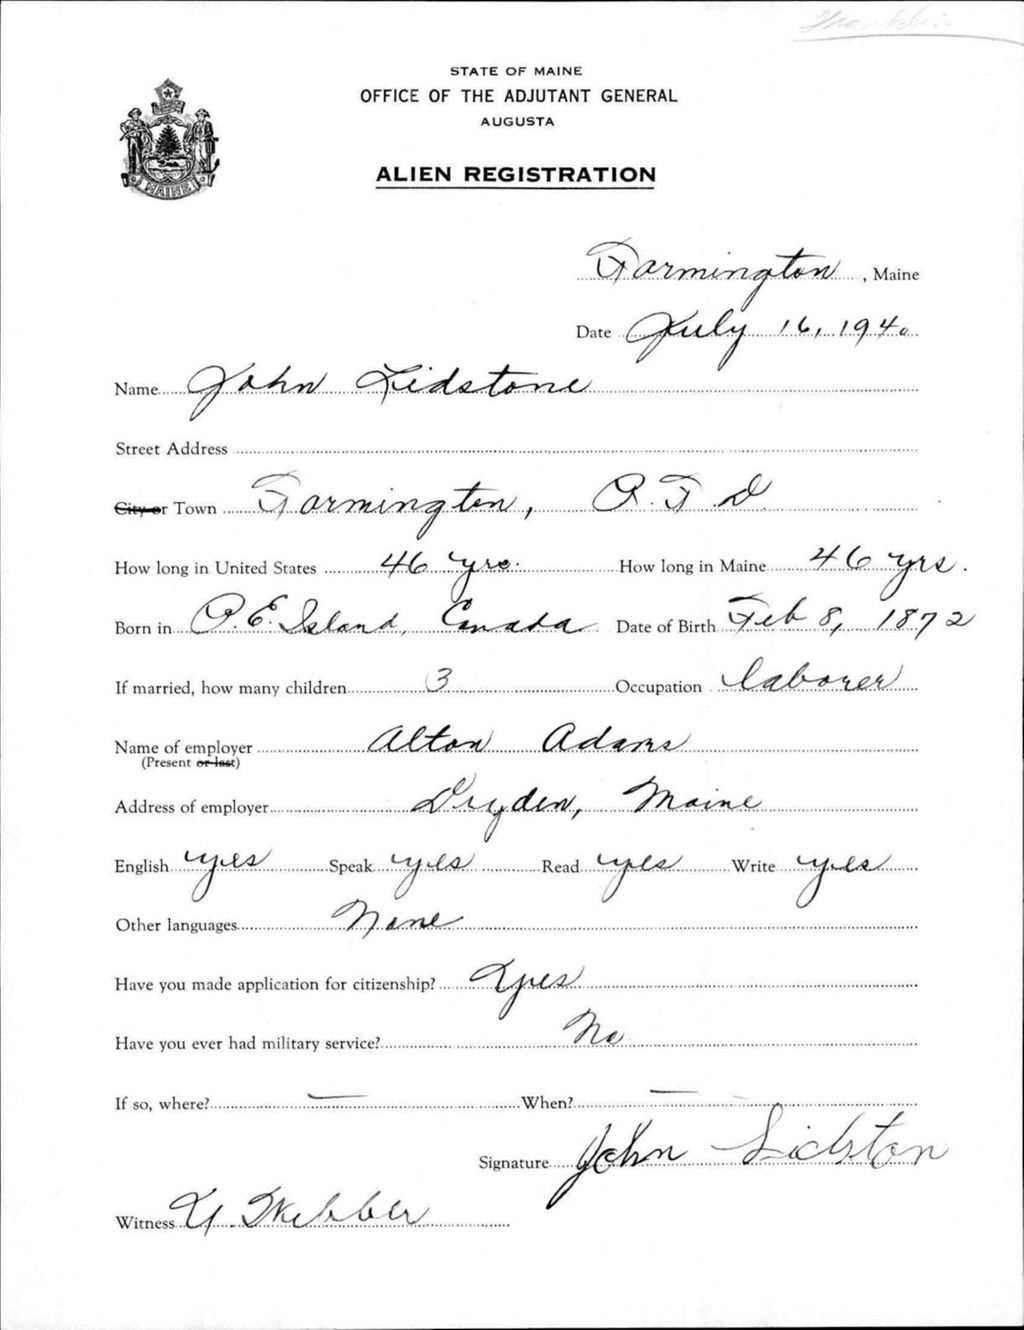 STATE OF MAINE
OFFICE OF THE ADJUTANT GENERAL
AUGUSTA
ALIEN REGISTRATION
MAINE
Farmington, Maine
Date July 16, 1940
Name John Lidstone
Street Address
City or Town Farmington, R.F.D.
How long in United States 46 yrs. How long in Maine 46 yrs.
Born in P.E. Island, Canada Date of Birth Feb 8, 1872
If married, how many children 3 Occupation laborer
Name of employer Alton Adams
(Present or last)
Address of employer Dryden, Maine
English yes Speak yes Read yes Write yes
Other languages None
Have you made application for citizenship? Yes
Have you ever had military service? No
If so, where? — When? —
Signature John Lidston
Witness